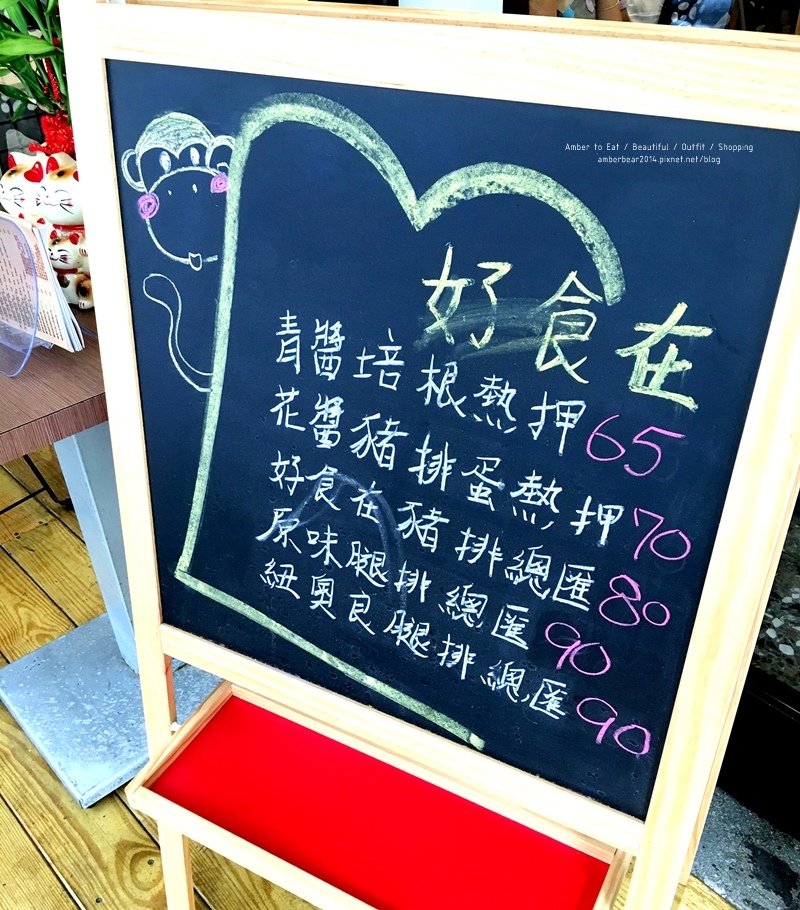 Amber to Eat / Beautiful / Outfit / Shopping
amberbear2014.pixnet.net/blog
好食在
青醬培根熱押65
花醬豬排蛋熱押70
好食在豬排總匯80
原味腿排總匯90
紐奧良腿排總匯90